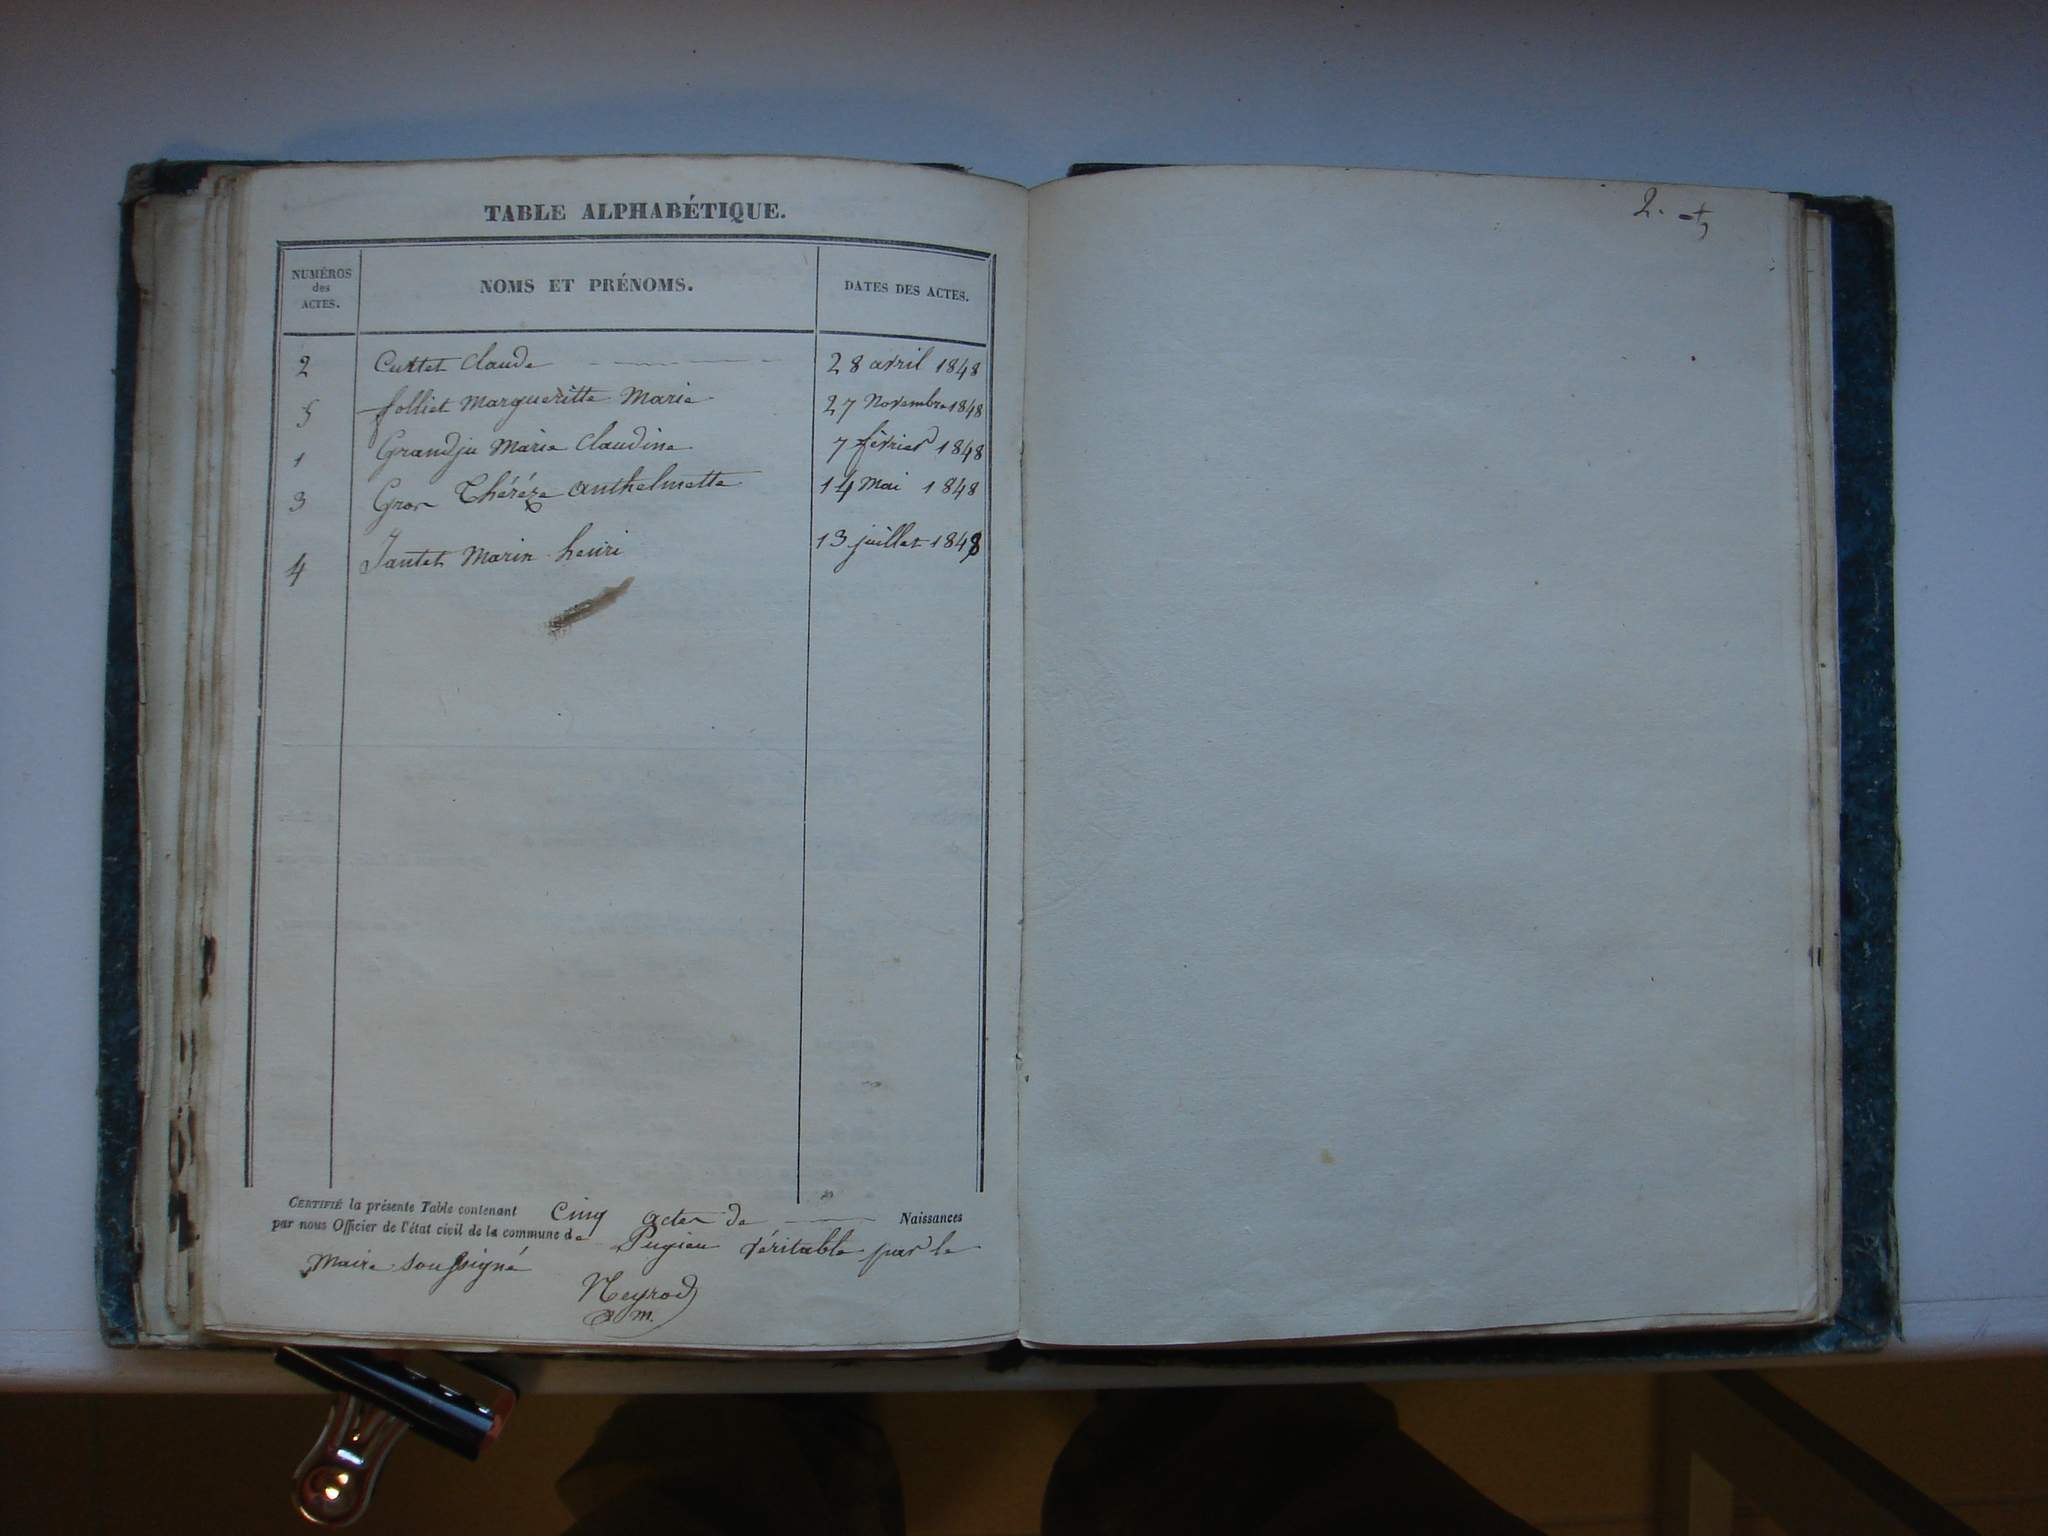 TABLE ALPHABÉTIQUE.
NUMÉROS des ACTES.
NOMS ET PRÉNOMS.
DATES DES ACTES.
2 Cuttet Claude 28 avril 1848
5 folliet Margueritte Marie 27 Novembre 1848
1 Grandju Marie Claudine 7 février 1848
3 Gros Théréze anthelmette 14 Mai 1848
4 Jantet Marin henri 13 juillet 1848
CERTIFIÉ la présente Table contenant Cinq actes de Naissances
par nous Officier de l'état civil de la commune de Pugieu véritable par le
Maire soussigné
Neyrod
m.
2.